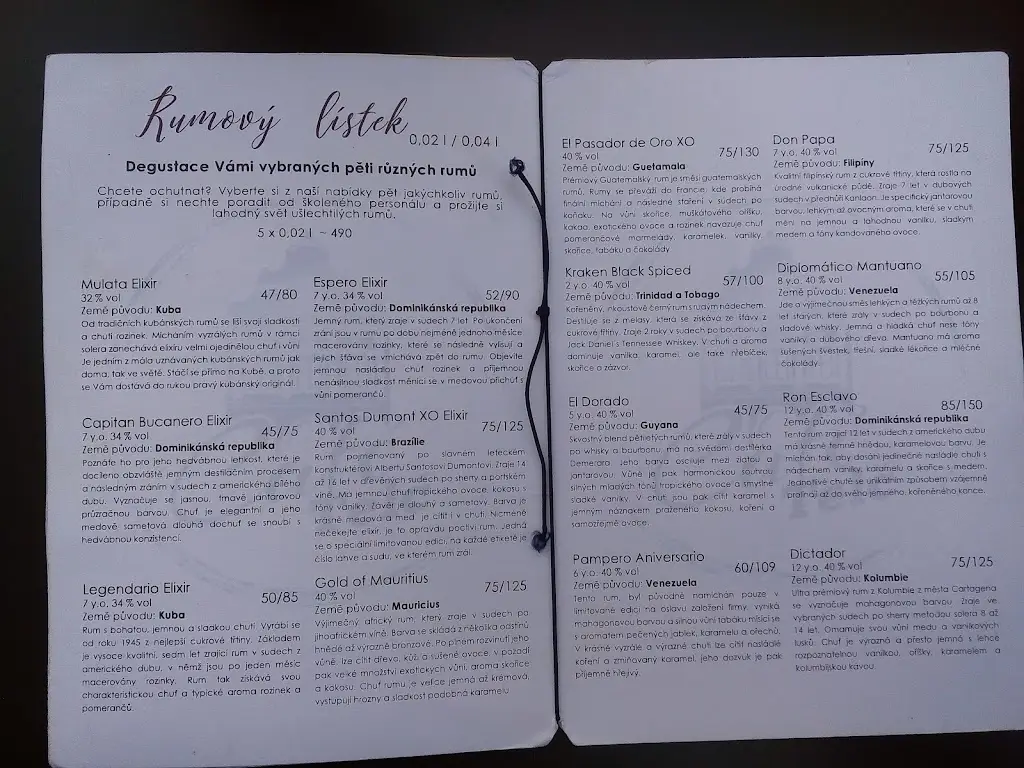 Rumový lístek
0,02 l / 0,04 l
Degustace Vámi vybraných pěti různých rumů
Chcete ochutnat? Vyberte si z naší nabídky pět jakýchkoliv rumů,
případně si nechte poradit od školeného personálu a prožijte si
lahodný svět ušlechtilých rumů.
5 x 0,02 l ~ 490
Mulata Elixir
32 % vol
47/80
Země původu: Kuba
Od tradičních kubánských rumů se liší svojí sladkostí
a chutí rozinek. Mícháním vyzrálých rumů v rámci
solera zanechává elixíru velmi ojedinělou chuť i vůni
Je jedním z mála uznávaných kubánských rumů jak
doma, tak ve světě. Stáčí se přímo na Kubě, a proto
se Vám dostává do rukou pravý kubánský originál.
Capitan Bucanero Elixir
7 y.o. 34 % vol
45/75
Země původu: Dominikánská republika
Poznáte ho pro jeho hedvábnou lehkost, které je
docíleno obzvláště jemným destilačním procesem
a následným zráním v sudech z amerického bílého
dubu. Vyznačuje se jasnou, tmavě jantarovou
průzračnou barvou. Chuť je elegantní a jeho
medově sametová dlouhá dochuť se snoubí s
hedvábnou konzistencí.
Legendario Elixir
7 y.o. 34 % vol
50/85
Země původu: Kuba
Rum s bohatou, jemnou a sladkou chutí. Vyrábí se
od roku 1945 z nejlepší cukrové třtiny. Základem
je vysoce kvalitní, sedm let zrající rum v sudech z
amerického dubu, v němž jsou po jeden měsíc
macerovány rozinky. Rum tak získává svou
charakteristickou chuť a typické aroma rozinek a
pomerančů.
Espero Elixir
7 y.o. 34 % vol
52/90
Země původu: Dominikánská republika
Jemný rum, který zraje v sudech 7 let. Po ukončení
zrání jsou v rumu po dobu nejméně jednoho měsíce
macerovány rozinky, které se následně vylisují a
jejich šťáva se vmíchává zpět do rumu. Objevíte
jemnou nasládlou chuť rozinek a příjemnou
nenásilnou sladkost měnící se v medovou příchuť s
vůní pomerančů.
Santos Dumont XO Elixir
40 % vol
75/125
Země původu: Brazílie
Rum pojmenovaný po slavném leteckém
konstruktérovi Albertu Santosovi Dumontovi. Zraje 14
až 16 let v dřevěných sudech po sherry a portském
víně. Má jemnou chuť tropického ovoce, kokosu s
tóny vanilky. Závěr je dlouhý a sametový. Barva je
krásně medová a med je cítit i v chuti. Nicméně
nečekejte elixír, je to opravdu poctivý rum. Jedná
se o speciální limitovanou edici, na každé etiketě je
číslo lahve a sudu, ve kterém rum zrál.
Gold of Mauritius
40 % vol
75/125
Země původu: Mauricius
Výjimečný africký rum, který zraje v sudech po
jihoafrickém víně. Barva se skládá z několika odstínů
hnědé až výrazně bronzové. Po plném rozvinutí jeho
vůně, lze cítit dřevo, kůži a sušené ovoce, v pozadí
pak velké množství exotických vůní, aroma skořice
a kokosu. Chuť rumu je velice jemná až krémová,
vystupují hrozny a sladkost podobná karamelu.
El Pasador de Oro XO
40 % vol
75/130
Země původu: Guetamala
Prémiový Guatemalský rum je směsí guatemalských
rumů. Rumy se převáží do Francie, kde probíhá
finální míchání a následné staření v sudech po
koňaku. Na vůni skořice, muškátového oříšku,
kakaa exotického ovoce a rozinek navazuje chuť
pomerančové marmelády, karamelek, vanilky,
skořice, tabáku a čokolády
Kraken Black Spiced
2 y.o. 40 % vol
57/100
Země původu: Trinidad a Tobago
Kořeněný, inkoustově černý rum s rudým nádechem.
Destiluje se z melasy, která se získává ze šťávy z
cukrové třtiny. Zraje 2 roky v sudech po bourbonu a
Jack Daniel's Tennessee Whiskey. V chuti a aroma
dominuje vanilka, karamel, ale také hřebíček,
skořice a zázvor.
El Dorado
5 y.o. 40 % vol
45/75
Země původu: Guyana
Skvostný blend pětiletých rumů, které zrály v sudech
po whisky a bourbonu, má na svědomí destilérka
Demerara. Jeho barva osciluje mezi zlatou a
jantarovou. Vůně je pak harmonickou souhrou
silných mladých tónů tropického ovoce a smyslné
sladké vanilky. V chuti jsou pak cítit karamel s
jemným náznakem praženého kokosu, koření a
samozřejmě ovoce.
Pampero Aniversario
6 y.o. 40 % vol
60/109
Země původu: Venezuela
Tento rum, byl původně namíchán pouze v
limitované edici na oslavu založení firmy, vyniká
mahagonovou barvou a silnou vůní tabáku mísící se
s aromatem pečených jablek, karamelu a ořechů.
V krásně vyzrálé a výrazné chuti lze cítit nasládlé
koření a zmiňovaný karamel, jeho dozvuk je pak
příjemně hřejivý.
Don Papa
7 y.o. 40 % vol
75/125
Země původu: Filipíny
Kvalitní filipínský rum z cukrové třtiny, která rostla na
úrodné vulkanické půdě. Zraje 7 let v dubových
sudech v předhůří Kanlaon. Je specifický jantarovou
barvou, lehkým až ovocným aroma, které se v chuti
mění na jemnou a lahodnou vanilku, sladkým
medem a tóny kandovaného ovoce.
Diplomático Mantuano
8 y.o. 40 % vol
55/105
Země původu: Venezuela
Jde o výjimečnou směs lehkých a těžkých rumů až 8
let starých, které zrály v sudech po bourbonu a
sladové whisky. Jemná a hladká chuť nese tóny
vanilky a dubového dřeva. Mantuano má aroma
sušených švestek, třešní, sladké lékořice a mléčné
čokolády.
Ron Esclavo
12 y.o. 40 % vol
85/150
Země původu: Dominikánská republika
Tento rum zrající 12 let v sudech z amerického dubu
má krásně temně hnědou, karamelovou barvu. Je
míchán tak, aby dosáhl jedinečné nasládlé chuti s
nádechem vanilky, karamelu a skořice s medem.
Jednotlivé chutě se unikátním způsobem vzájemně
prolínají až do svého jemného, kořeněného konce.
Dictador
12 y.o. 40 % vol
75/125
Země původu: Kolumbie
Ultra prémiový rum z Kolumbie z města Cartagena
se vyznačuje mahagonovou barvou zraje ve
vybraných sudech po sherry metodou solera 8 až
14 let. Omamuje svou vůní medu a vanilkových
lusků. Chuť je výrazná a přesto jemná s lehce
rozpoznatelnou vanilkou, oříšky, karamelem a
kolumbijskou kávou.